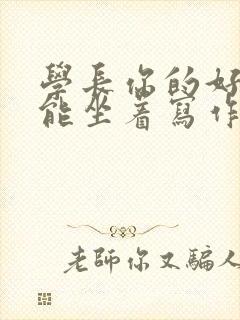 學長你的好
能坐着寫作
老師你又騙人